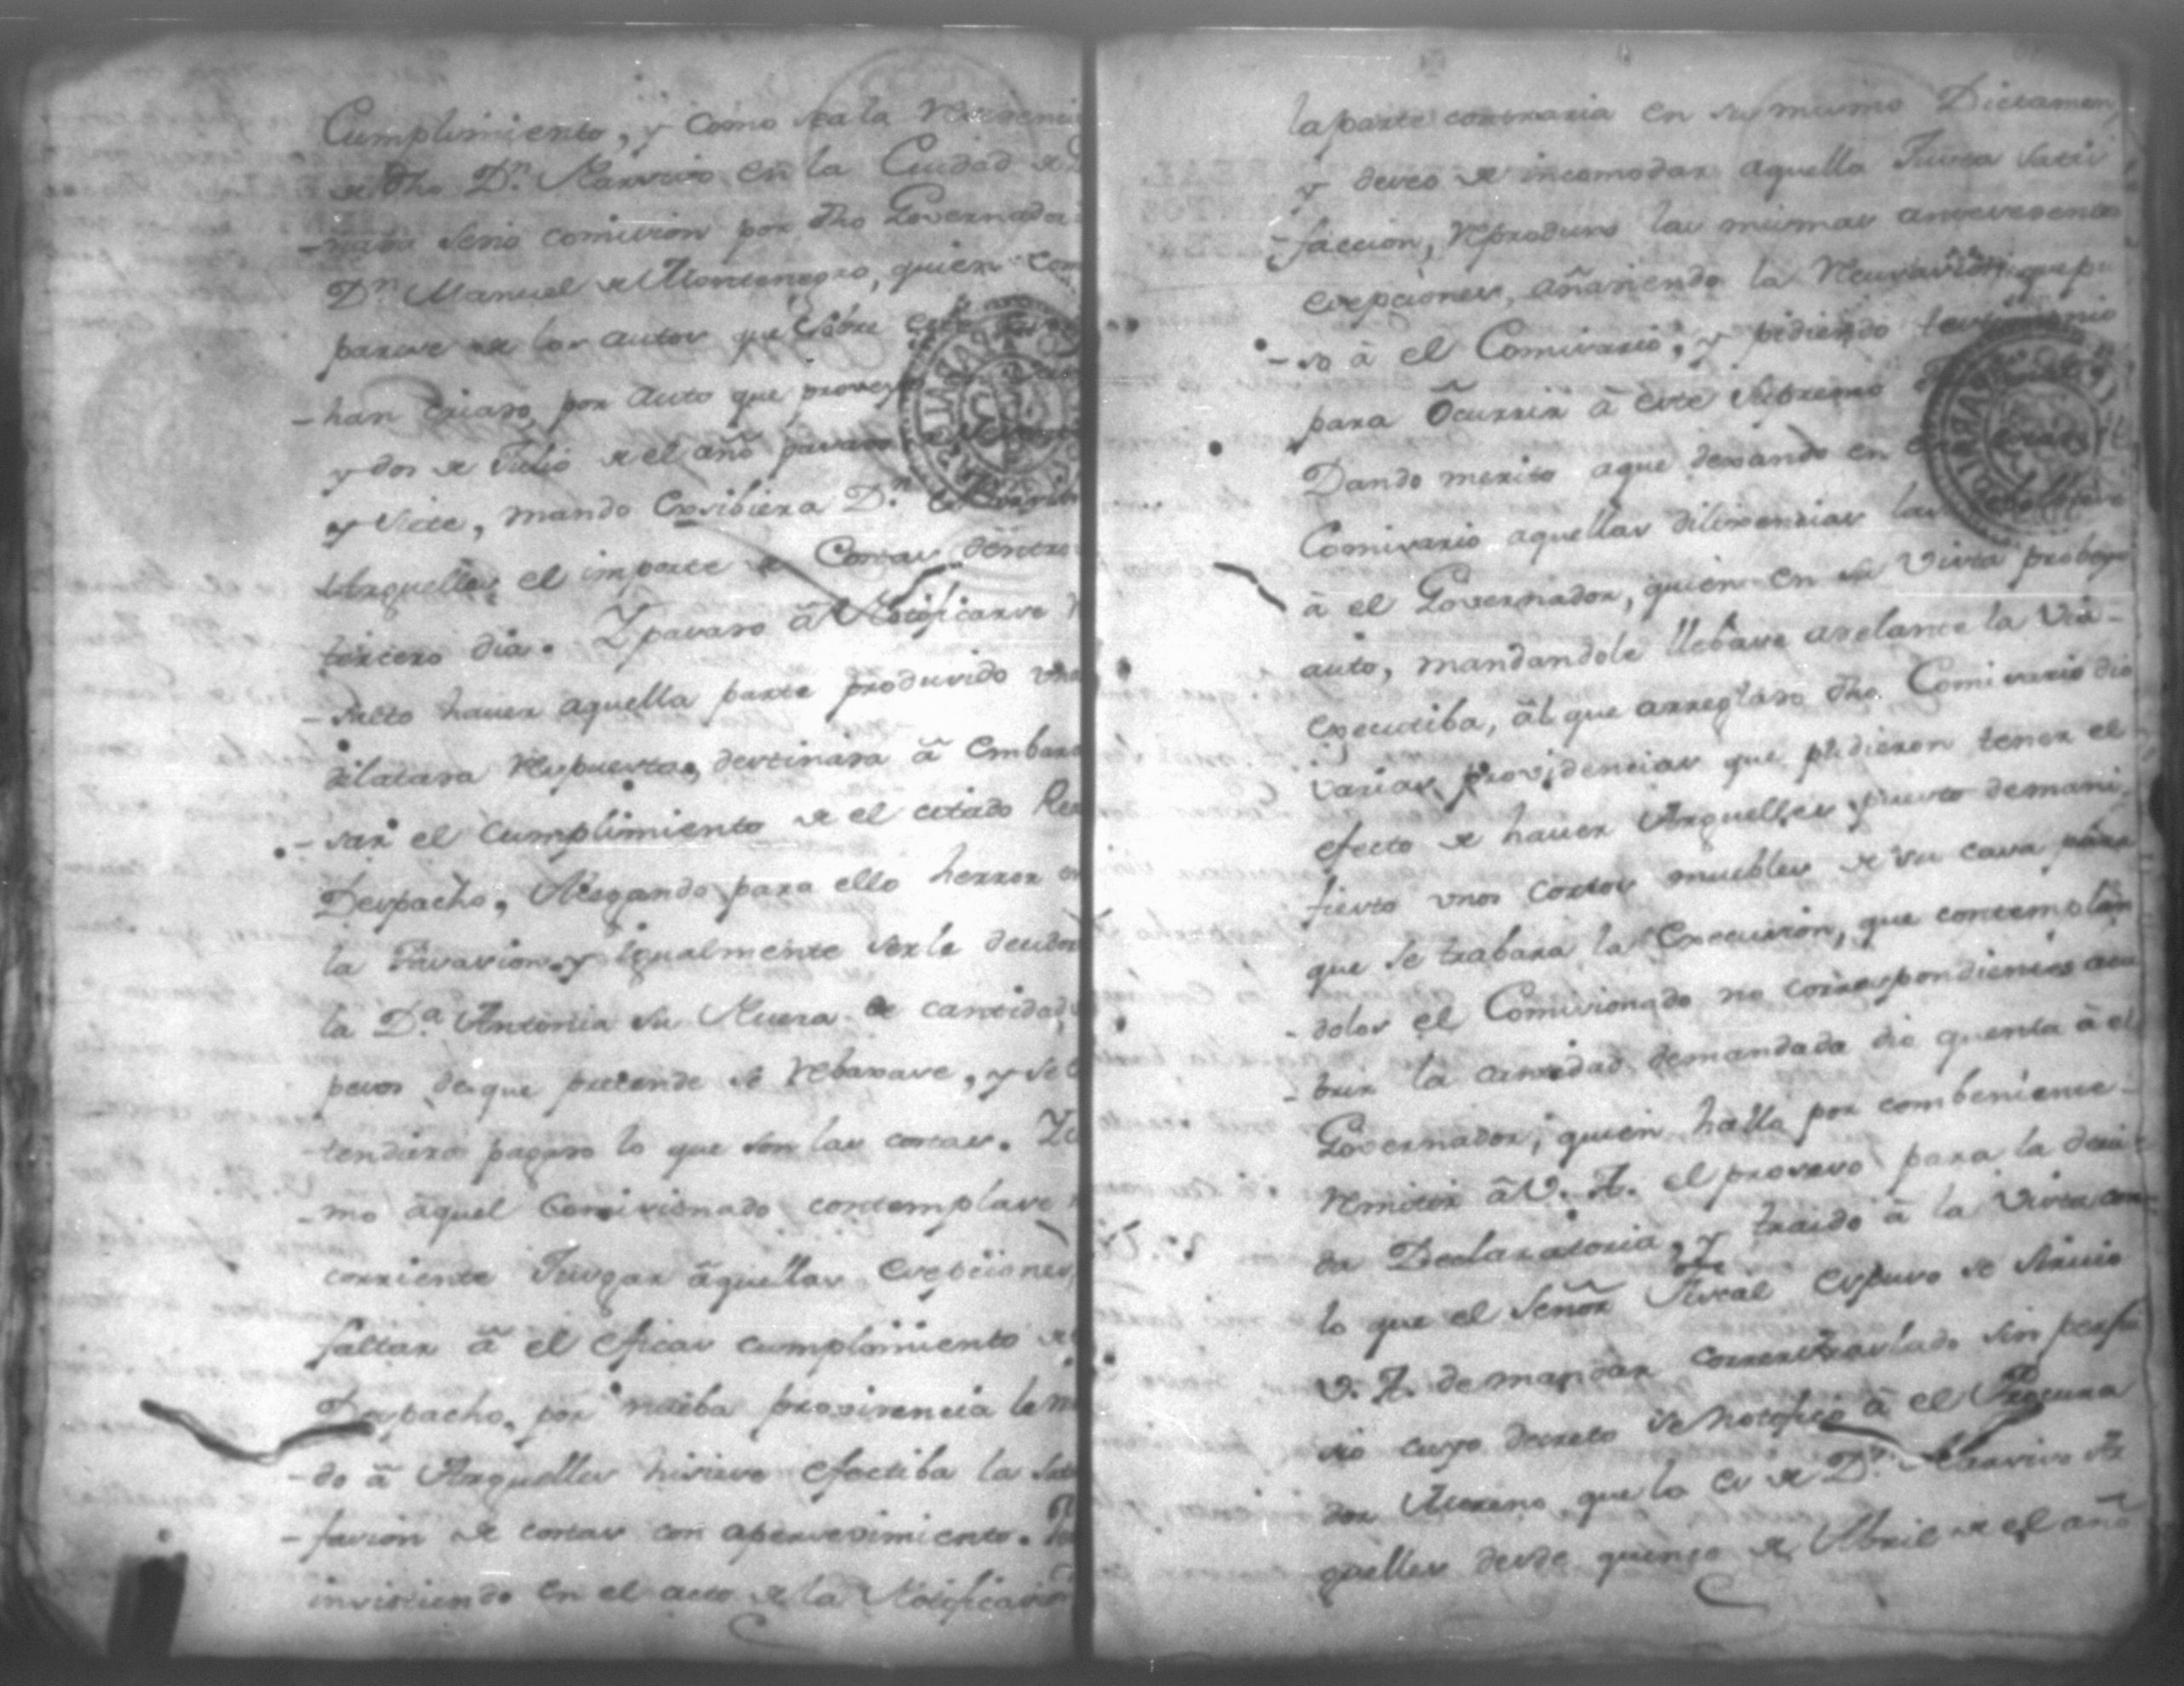 Cumplimiento, y como sea la
de dho Dn. Narsiso en la Ciudad de
comision por dho Governador
Dn. Manuel de Montenegro, quien con
parte de los autos qe sobre esto
han criado, por auto que proveyo
y dos de Julio de el año pasado
y siete, mando Exsibiera Dn.
Arguelles el importe de Costas dentro
tercero dia. Y pasado â Notificarse
haver aquella parte producido una
dilatada Respuesta, destinada â Embara
-sar el cumplimiento de el citado Rea
Despacho, Alegando para ello herror en
la Tasasion y igualmente serle deudor
la Da. Antonia su Nuera de cantidad
pesos de que pretende se Rebaxase, y se
pagado lo que son las costas. Y co
-mo aquel Comisionado contemplase
corriente Jusgar âquellas Exepciones,
faltar â el eficas cumplimiento de
Despacho, por nueba providencia le m
-do â Arguelles hisiese efectiba la sati
-facion de costas con apersevimiento.
insistiendo en el acto de la Notificasion
la parte contraria en su mismo Dictamen,
y deseo de incomodar aquella Justa satis
-faccion, Reprodujo las mismas antesedentes
exepciones, añadiendo la Recusasion que pu
-so â el Comisario, y pidiendo testimonio
para Ôcurrir â este Supremo
Dando merito a que dexando en
Comisario aquellas diligencias las
â el Governador, quien en su Vista probeyo
auto, mandandole llebase adelante la Via
Executiba, âl que arreglado dho. Comisario dio
varias providencias que pudieron tener el
efecto de haver Arguelles puesto de mani
fiesto unos cortos muebles de su casa para
que se trabara la Execusion, que contemplan
-dolos el Comisionado no correspondientes acu
-brir la cantidad demandada dio quenta â el
Governador, quien halla por combeniente
Remitir â V. A. el proseso para la devi
da Declaratoria, y traido â la Vista con
lo que el Señor Fiscal expuso se sirvio
V. A. de mandar correr traslado sin perjui
sio cuyo decreto se Notifico â el Procura
dor Moreno, que lo es de Dn. Narsiso Ar
guelles desde quinse de Abril de el año